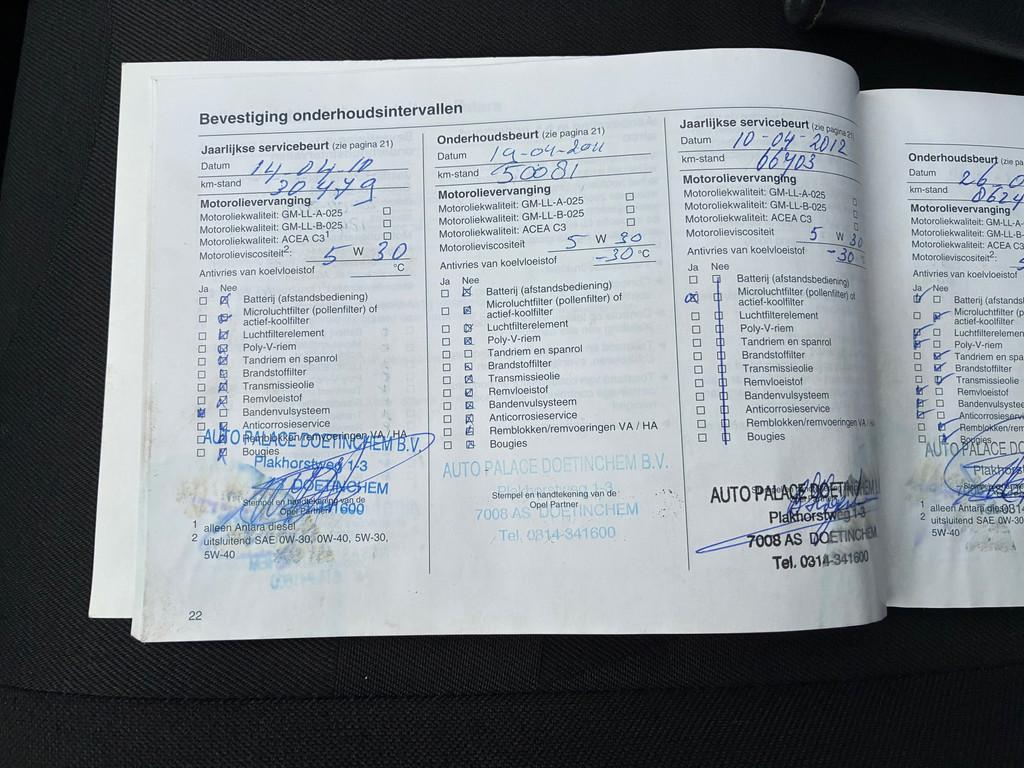 Bevestiging onderhoudsintervallen
Jaarlijkse servicebeurt (zie pagina 21)
Datum 14-04-10
km-stand 30479
Motorolievervanging
Motoroliekwaliteit: GM-LL-A-025
Motoroliekwaliteit: GM-LL-B-025
Motoroliekwaliteit: ACEA C3¹
Motorolieviscositeit²: 5 W 30
Antivries van koelvloeistof °C
Ja Nee
Batterij (afstandsbediening)
Microluchtfilter (pollenfilter) of
actief-koolfilter
Luchtfilterelement
Poly-V-riem
Tandriem en spanrol
Brandstoffilter
Transmissieolie
Remvloeistof
Bandenvulsysteem
Anticorrosieservice
Remblokken/remvoeringen VA / HA
Bougies
AUTO PALACE DOETINCHEM B.V.
Plakhorstweg 1-3
DOETINCHEM
Stempel en handtekening van de
Opel Partner
1600
1 alleen Antara diesel
2 uitsluitend SAE 0W-30, 0W-40, 5W-30,
5W-40
22
Onderhoudsbeurt (zie pagina 21)
Datum 19-04-2011
km-stand 50081
Motorolievervanging
Motoroliekwaliteit: GM-LL-A-025
Motoroliekwaliteit: GM-LL-B-025
Motoroliekwaliteit: ACEA C3
Motorolieviscositeit 5 W 30
Antivries van koelvloeistof -30 °C
Ja Nee
Batterij (afstandsbediening)
Microluchtfilter (pollenfilter) of
actief-koolfilter
Luchtfilterelement
Poly-V-riem
Tandriem en spanrol
Brandstoffilter
Transmissieolie
Remvloeistof
Bandenvulsysteem
Anticorrosieservice
Remblokken/remvoeringen VA / HA
Bougies
AUTO PALACE DOETINCHEM B.V.
Plakhorstweg 1-3
Stempel en handtekening van de
Opel Partner
7008 AS DOETINCHEM
Tel. 0314-341600
Jaarlijkse servicebeurt (zie pagina 21)
Datum 10-04-2012
km-stand 66403
Motorolievervanging
Motoroliekwaliteit: GM-LL-A-025
Motoroliekwaliteit: GM-LL-B-025
Motoroliekwaliteit: ACEA C3
Motorolieviscositeit 5 W 30
Antivries van koelvloeistof -30 °C
Ja Nee
Batterij (afstandsbediening)
Microluchtfilter (pollenfilter) of
actief-koolfilter
Luchtfilterelement
Poly-V-riem
Tandriem en spanrol
Brandstoffilter
Transmissieolie
Remvloeistof
Bandenvulsysteem
Anticorrosieservice
Remblokken/remvoeringen VA
Bougies
AUTO PALACE DOETINCHEM
Plakhorstweg 1-3
7008 AS DOETINCHEM
Tel. 0314-341600
Onderhoudsbeurt (zie pa
Datum 26-0
km-stand 8624
Motorolievervanging
Motoroliekwaliteit: GM-LL-A
Motoroliekwaliteit: GM-LL-B-
Motoroliekwaliteit: ACEA C3
Motorolieviscositeit²:
Antivries van koelvloeistof
Ja Nee
Batterij (afstands
Microluchtfilter (p
actief-koolfilter
Luchtfilterelemen
Poly-V-riem
Tandriem en spa
Brandstoffilter
Transmissieolie
Remvloeistof
Bandenvulsystee
Anticorrosieserv
Remblokken/rem
Bougies
AUTO PALACE DO
Plakhorst
1 alleen Antara diesel
2 uitsluitend SAE 0W-30
5W-40